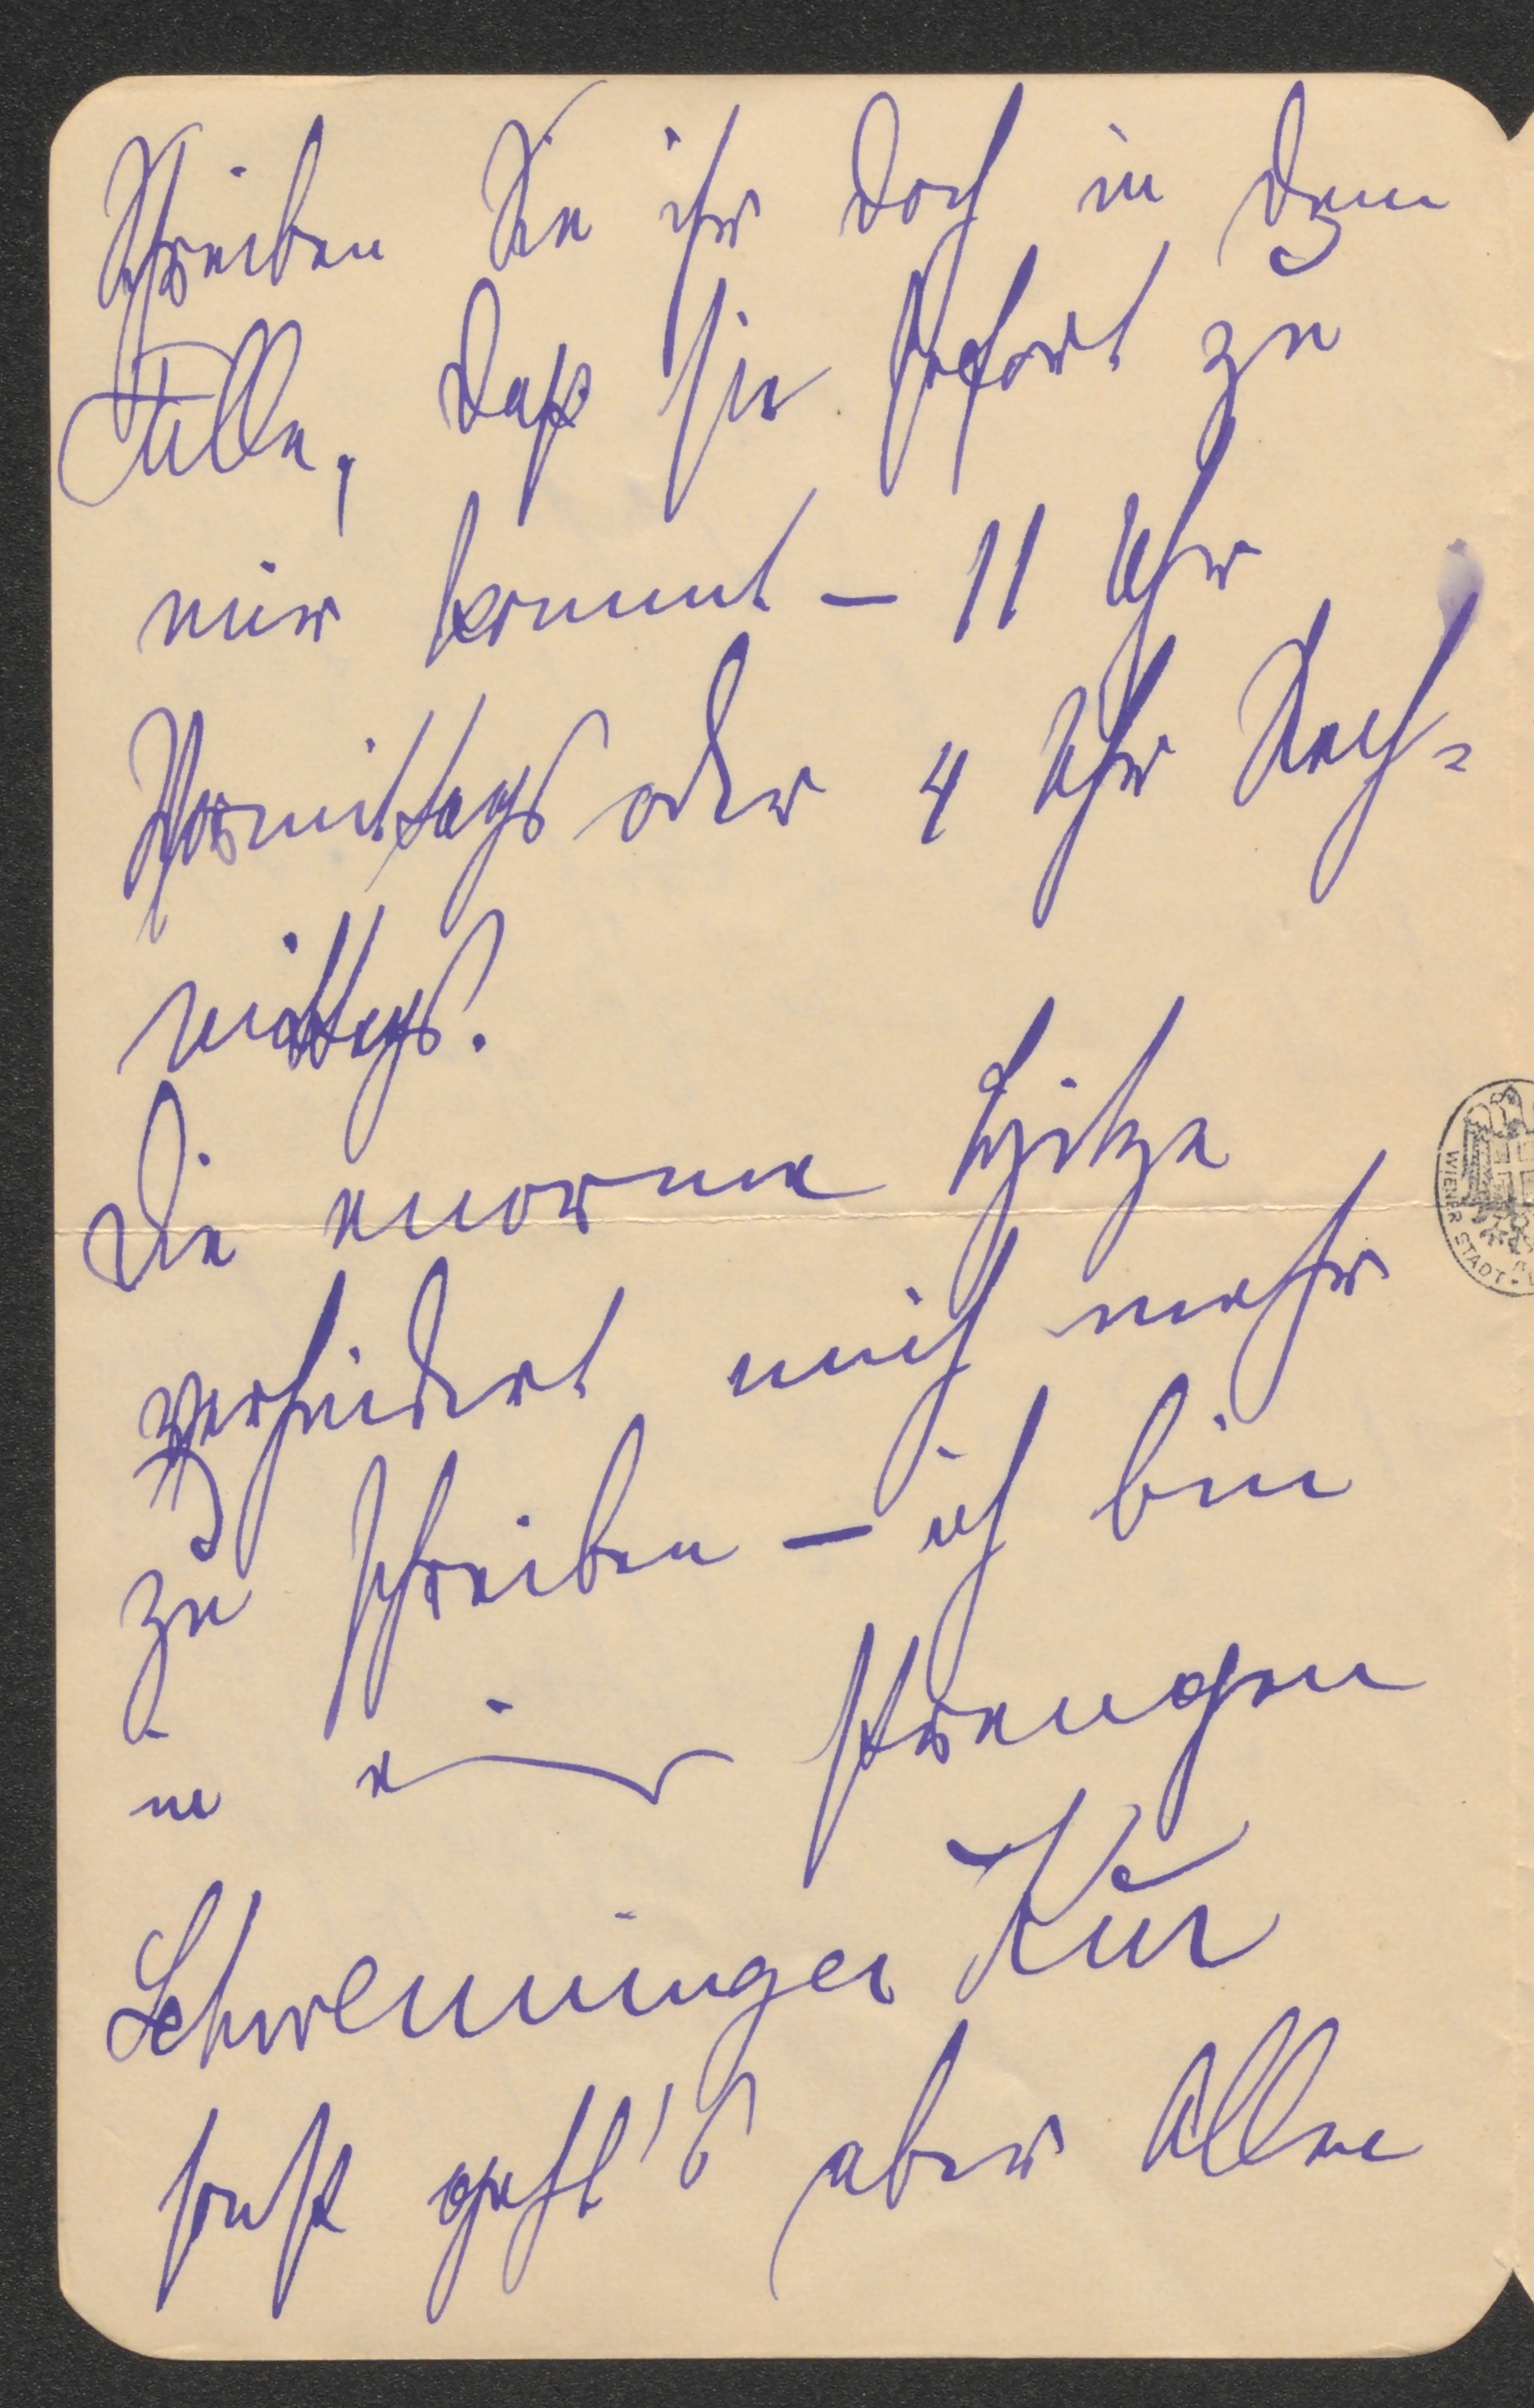 Schreiben Sie ihr doch in dem
Falle, daß sie sofort zu
mir kommt – 11 Uhr
Vormittags oder 4 Uhr Nach-
mittags.
Die enorme Hitze
verhindert mich mehr
zu schreiben – ich bin
in einer strengen
Schweninger Kur
sonst geht's aber Allen
WIENER STADT-